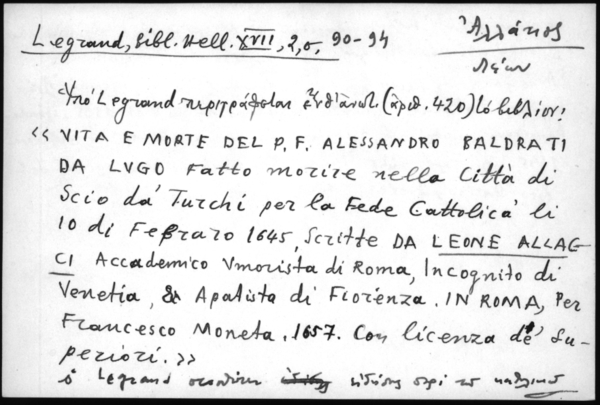 Legrand, Bibl. Hell. XVII, 2, σ. 90-94
Ἀλλάτιος
Λέων
Ὑπό Legrand περιγράφεται ἐνθάδε (ἀριθ. 420) τό βιβλίον:
« VITA E MORTE DEL P. F. ALESSANDRO BALDRATI
DA LVGO Fatto morire nella Città di
Scio da' Turchi per la Fede Cattolica' li
10 di Febraro 1645, Scritte DA LEONE ALLAC
CI Accademico Vmorista di Roma, Incognito di
Venetia, & Apatista di Fiorenza. IN ROMA, Per
Francesco Moneta. 1657. Con licenza de' Su-
periori. »
ὁ Legrand εἰδήσεις περί τοῦ